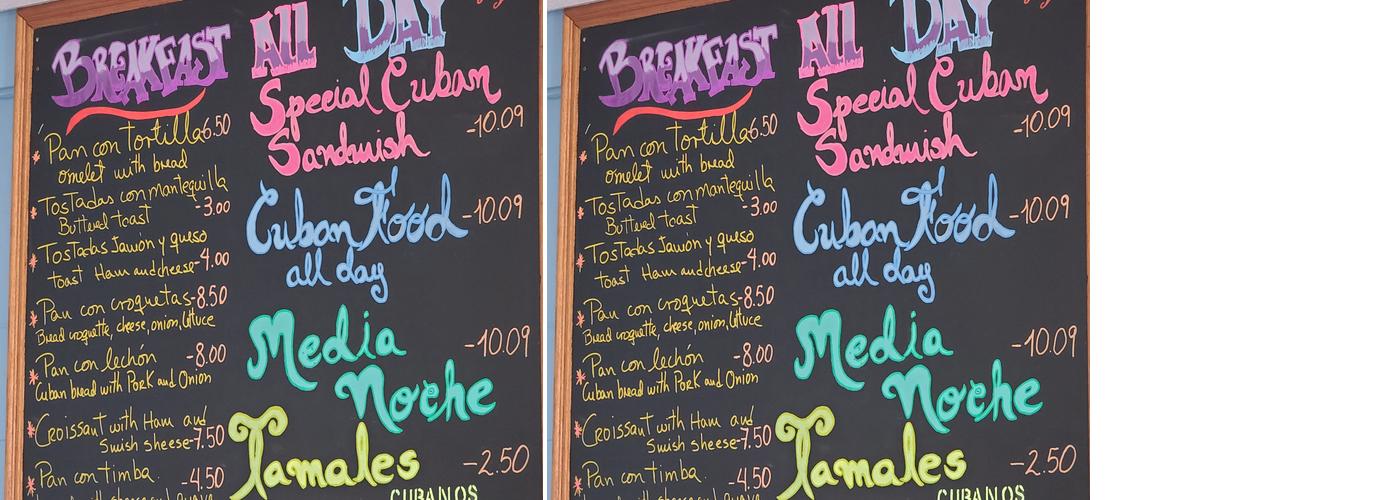 BREAKFAST
ALL DAY
*Pan con tortilla 6.50
omelet with bread
*Tostadas con mantequilla
Buttered toast -3.00
*Tostadas Jamón y queso
toast Ham and cheese-4.00
*Pan con croquetas-8.50
Bread croquette, cheese, onion, lettuce
*Pan con lechón -8.00
Cuban bread with Pork and Onion
*Croissant with Ham and
Swish sheese-7.50
*Pan con timba. -4.50
Special Cuban
Sandwish -10.09
Cuban Food -10.09
all day
Media -10.09
Noche
Tamales -2.50
CUBANOS
BREAKFAST
ALL DAY
*Pan con tortilla 6.50
omelet with bread
*Tostadas con mantequilla
Buttered toast -3.00
*Tostadas Jamón y queso
toast Ham and cheese-4.00
*Pan con croquetas-8.50
Bread croquette, cheese, onion, lettuce
*Pan con lechón -8.00
Cuban bread with Pork and Onion
*Croissant with Ham and
Swish sheese-7.50
*Pan con timba. -4.50
Special Cuban
Sandwish -10.09
Cuban Food -10.09
all day
Media -10.09
Noche
Tamales -2.50
CUBANOS